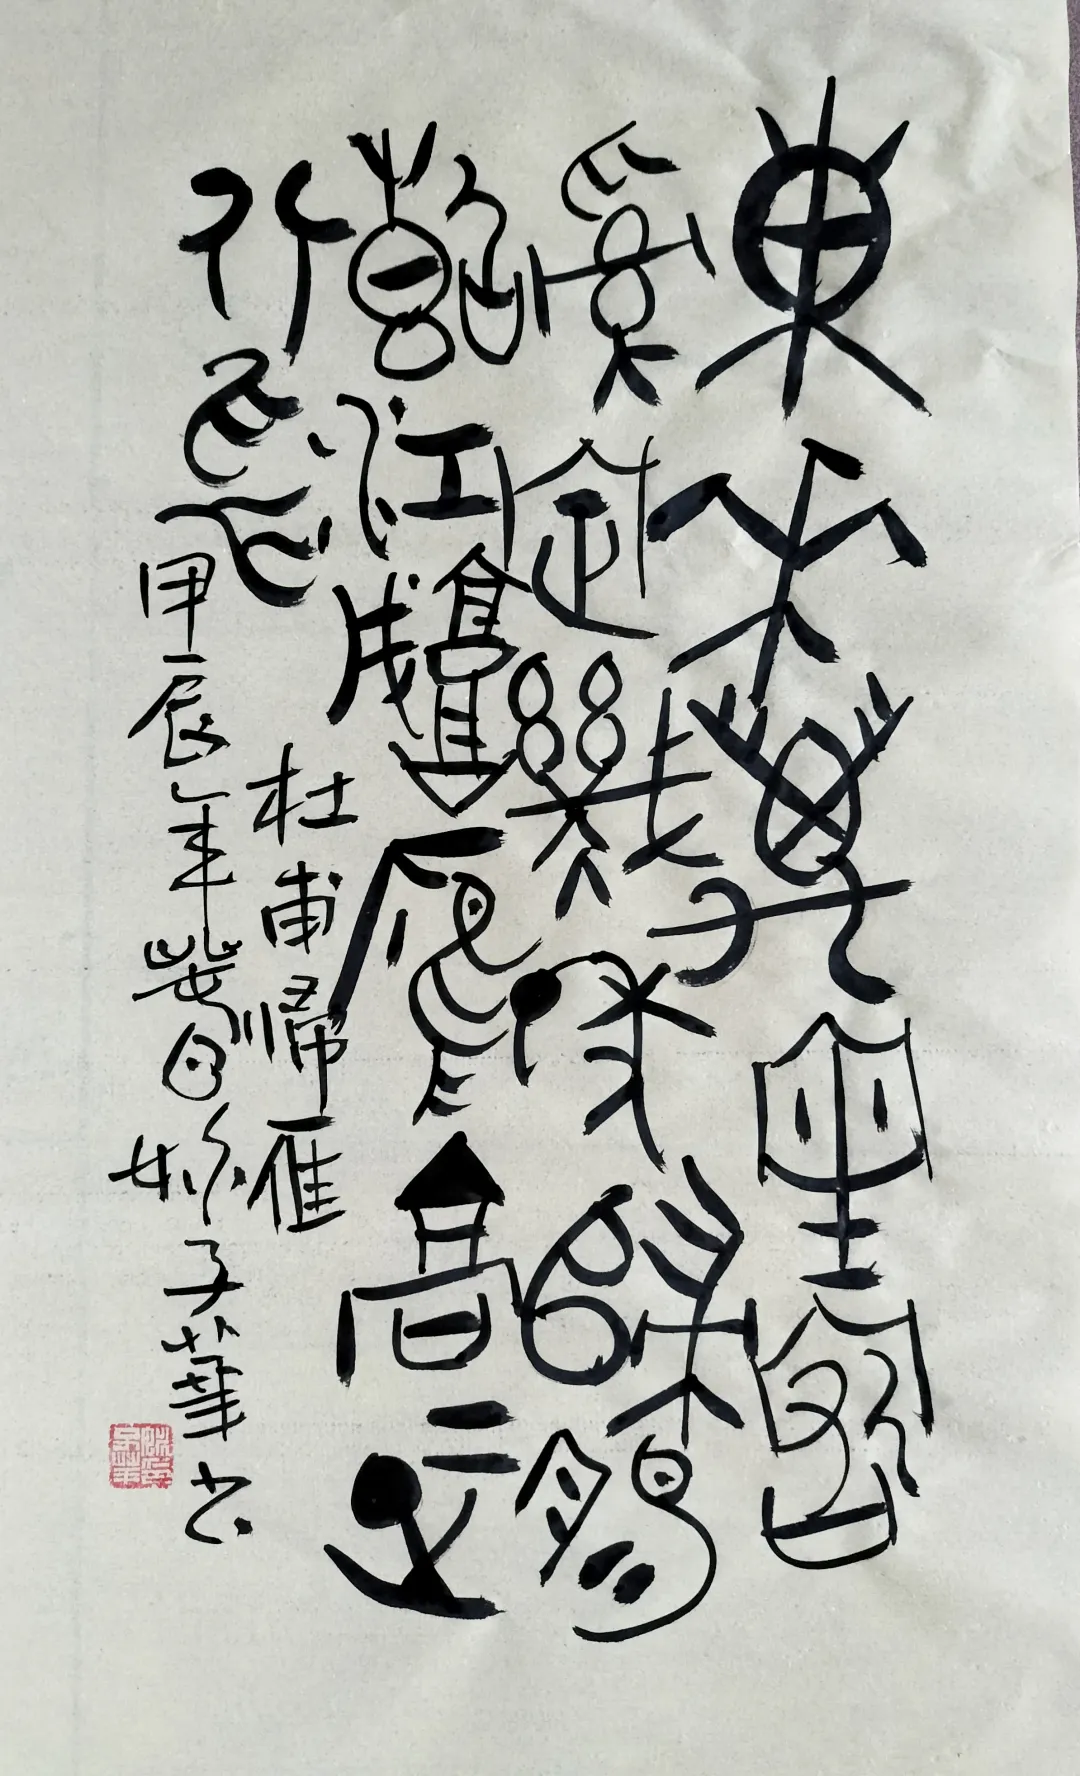 東來萬里客
亂定幾年歸腸
斷江城雁高=正
北飛
杜甫歸雁
甲辰年日子華书